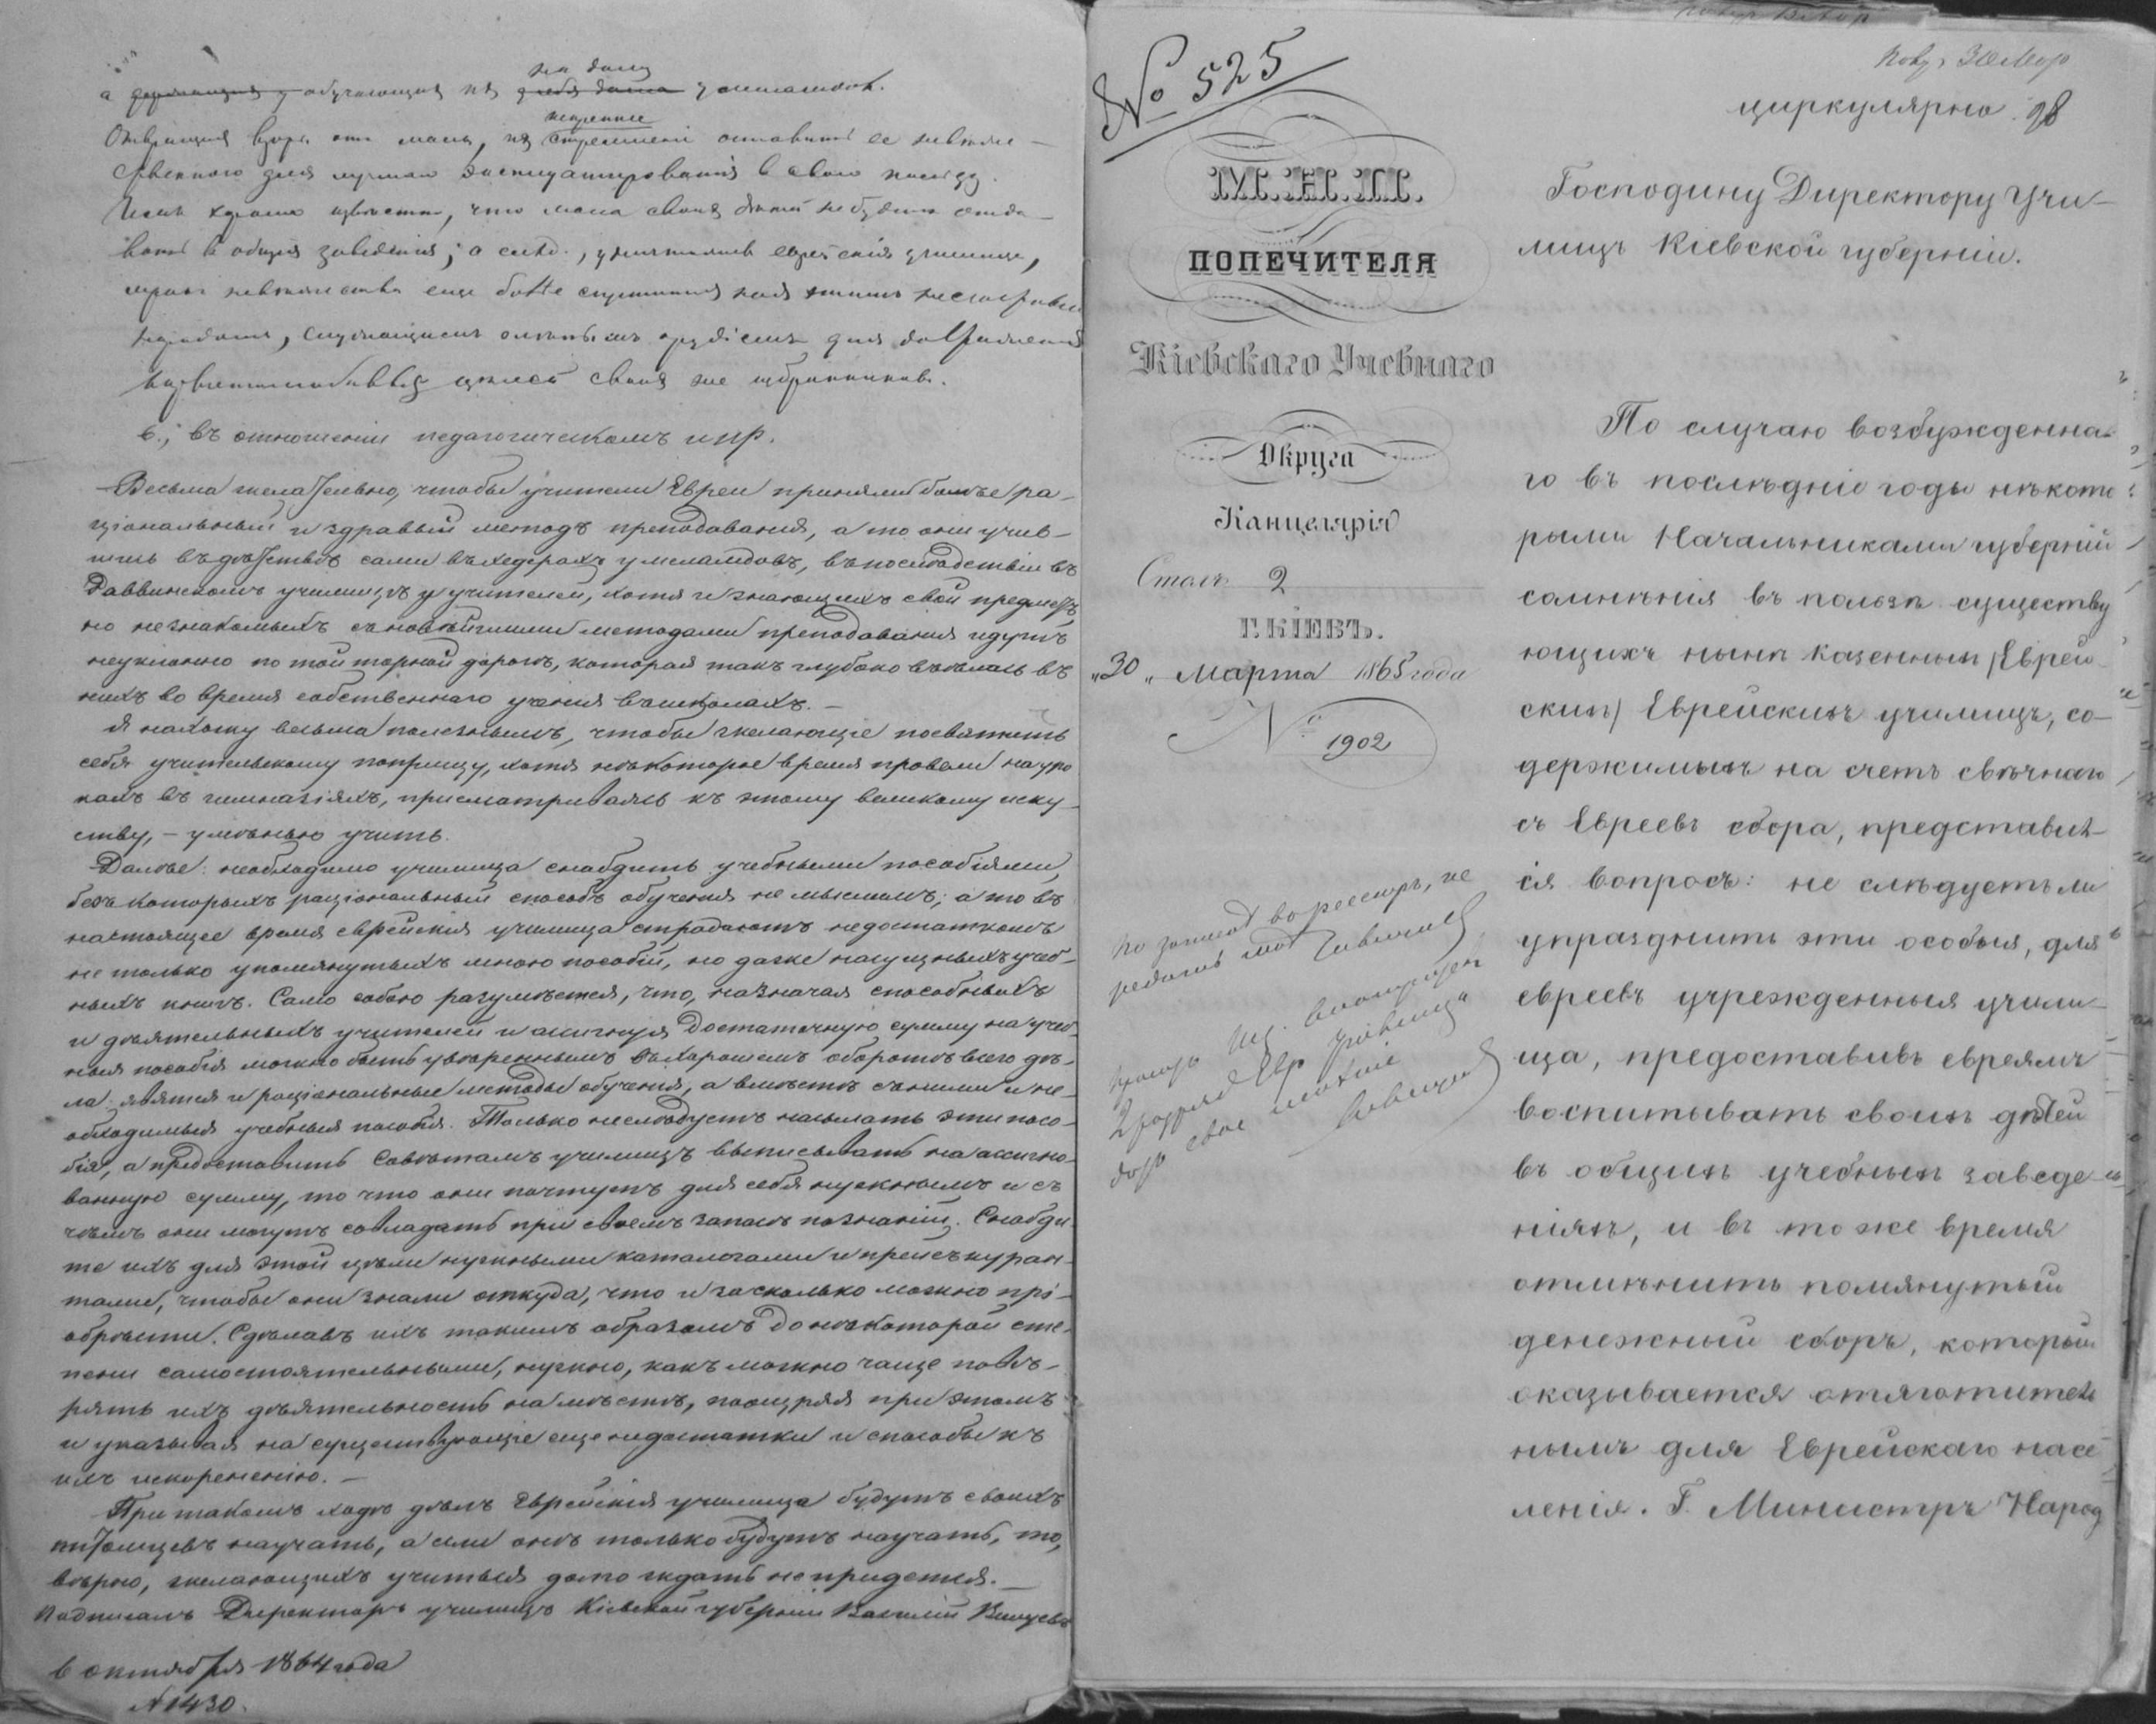 а обучающихся на дому у
Отвращая взоръ отъ массы, искреннее стремленіе оставить ее невѣже-
ственною для лучшаго эксплуатированія в свою пользу.
хорошо извѣстно, что масса своихъ дѣтей не будетъ отда-
вать в общія заведенія; а слѣд., уничтоживъ еврейскія училища,
мракъ невѣжества еще болѣе спустится надъ этимъ
народомъ, служащимъ орудіемъ для
цѣлей своихъ же избранниковъ.
в., въ отношеніи педагогическомъ и пр.
Весьма желательно, чтобы учители Евреи приняли болѣе ра-
ціональный и здравый методъ преподаванія, а то они учив-
шись въ дѣтствѣ сами въ хедерахъ у меламдовъ, въ послѣдствіи въ
Раввинскомъ училищѣ у учителей, хотя и знающихъ свой предметъ,
но незнакомыхъ съ новѣйшими методами преподаванія идутъ
неуклонно по той торной дорогѣ, которая такъ глубоко въѣлась въ
нихъ во время собственнаго ученія въ школахъ. —
Я нахожу весьма полезнымъ, чтобы желающіе посвятить
себя учительскому поприщу, хотя нѣкоторое время провели на уро-
кахъ въ гимназіяхъ, присматриваясь къ этому великому иску-
ству, — умѣнью учить.
Далѣе: необходимо училища снабдить учебными пособіями,
безъ которыхъ раціональный способъ обученія не мыслимъ; а то въ
настоящее время еврейскія училища страдаютъ недостаткомъ
не только упомянутыхъ мною пособій, но даже насущныхъ учеб-
ныхъ книгъ. Само собою разумѣется, что, назначая способныхъ
и дѣятельныхъ учителей и ассигнуя достаточную сумму на учеб-
ныя пособія можно быть увѣреннымъ въ хорошемъ оборотѣ всего дѣ-
ла: явятся и раціональные методы обученія, а вмѣстѣ съ ними и не-
обходимыя учебныя пособія. Только не слѣдуетъ насылать эти посо-
бія, а предоставить Совѣтамъ училищъ выписывать на ассигно-
ванную сумму, то что они почтутъ для себя нужнымъ и съ
чѣмъ они могутъ совладать при своемъ запасѣ познаній. Снабди-
те ихъ для этой цѣли нужными каталогами и прейсъ-куран-
тами, чтобы они знали откуда, что и за сколько можно прі-
обрѣсти. Сдѣлавъ ихъ такимъ образомъ до нѣкоторой сте-
пени самостоятельными, нужно, какъ можно чаще повѣ-
рять ихъ дѣятельность на мѣстѣ, поощряя при этомъ
и указывая на существующіе еще недостатки и способы къ
ихъ искорененію. —
При такомъ ходѣ дѣлъ Еврейскія училища будутъ своихъ
питомцевъ научать, а если онѣ только будутъ научать, то,
вѣрно, желающихъ учиться долго ждать не придется. —
Подписалъ Директоръ училищъ Кіевской губерніи Василій
6 октября 1864 года
N 1430.
№ 525
М.Н.П.
ПОПЕЧИТЕЛЯ
Кіевскаго Учебнаго
Округа
Канцелярія
Столъ 2
Г. КІЕВЪ.
„30„ Марта 1865 года
№ 1902
По запис. во реестръ, не
2 разряд. Евр. училища
свое мнѣніе
циркулярно. 98
Господину Директору Учи-
лищъ Кіевской губерніи.
По случаю возбужденна-
го въ послѣдніе годы нѣкото-
рыми Начальниками губерній
сомнѣнія въ пользѣ существу
ющихъ нынѣ казенныхъ /Еврей-
скихъ/ Еврейскихъ училищъ, со-
держимыхъ на счетъ свѣчнаго
съ Евреевъ сбора, представил-
ся вопросъ: не слѣдуетъ ли
упразднить эти особыя, для
евреевъ учрежденныя учили-
ща, предоставивъ евреямъ
воспитывать своихъ дѣтей
въ общихъ учебныхъ заведе-
ніяхъ, и въ тоже время
отмѣнить помянутый
денежный сборъ, который
оказывается отяготитель
нымъ для Еврейскаго насе
ленія. Г. Министръ Народ